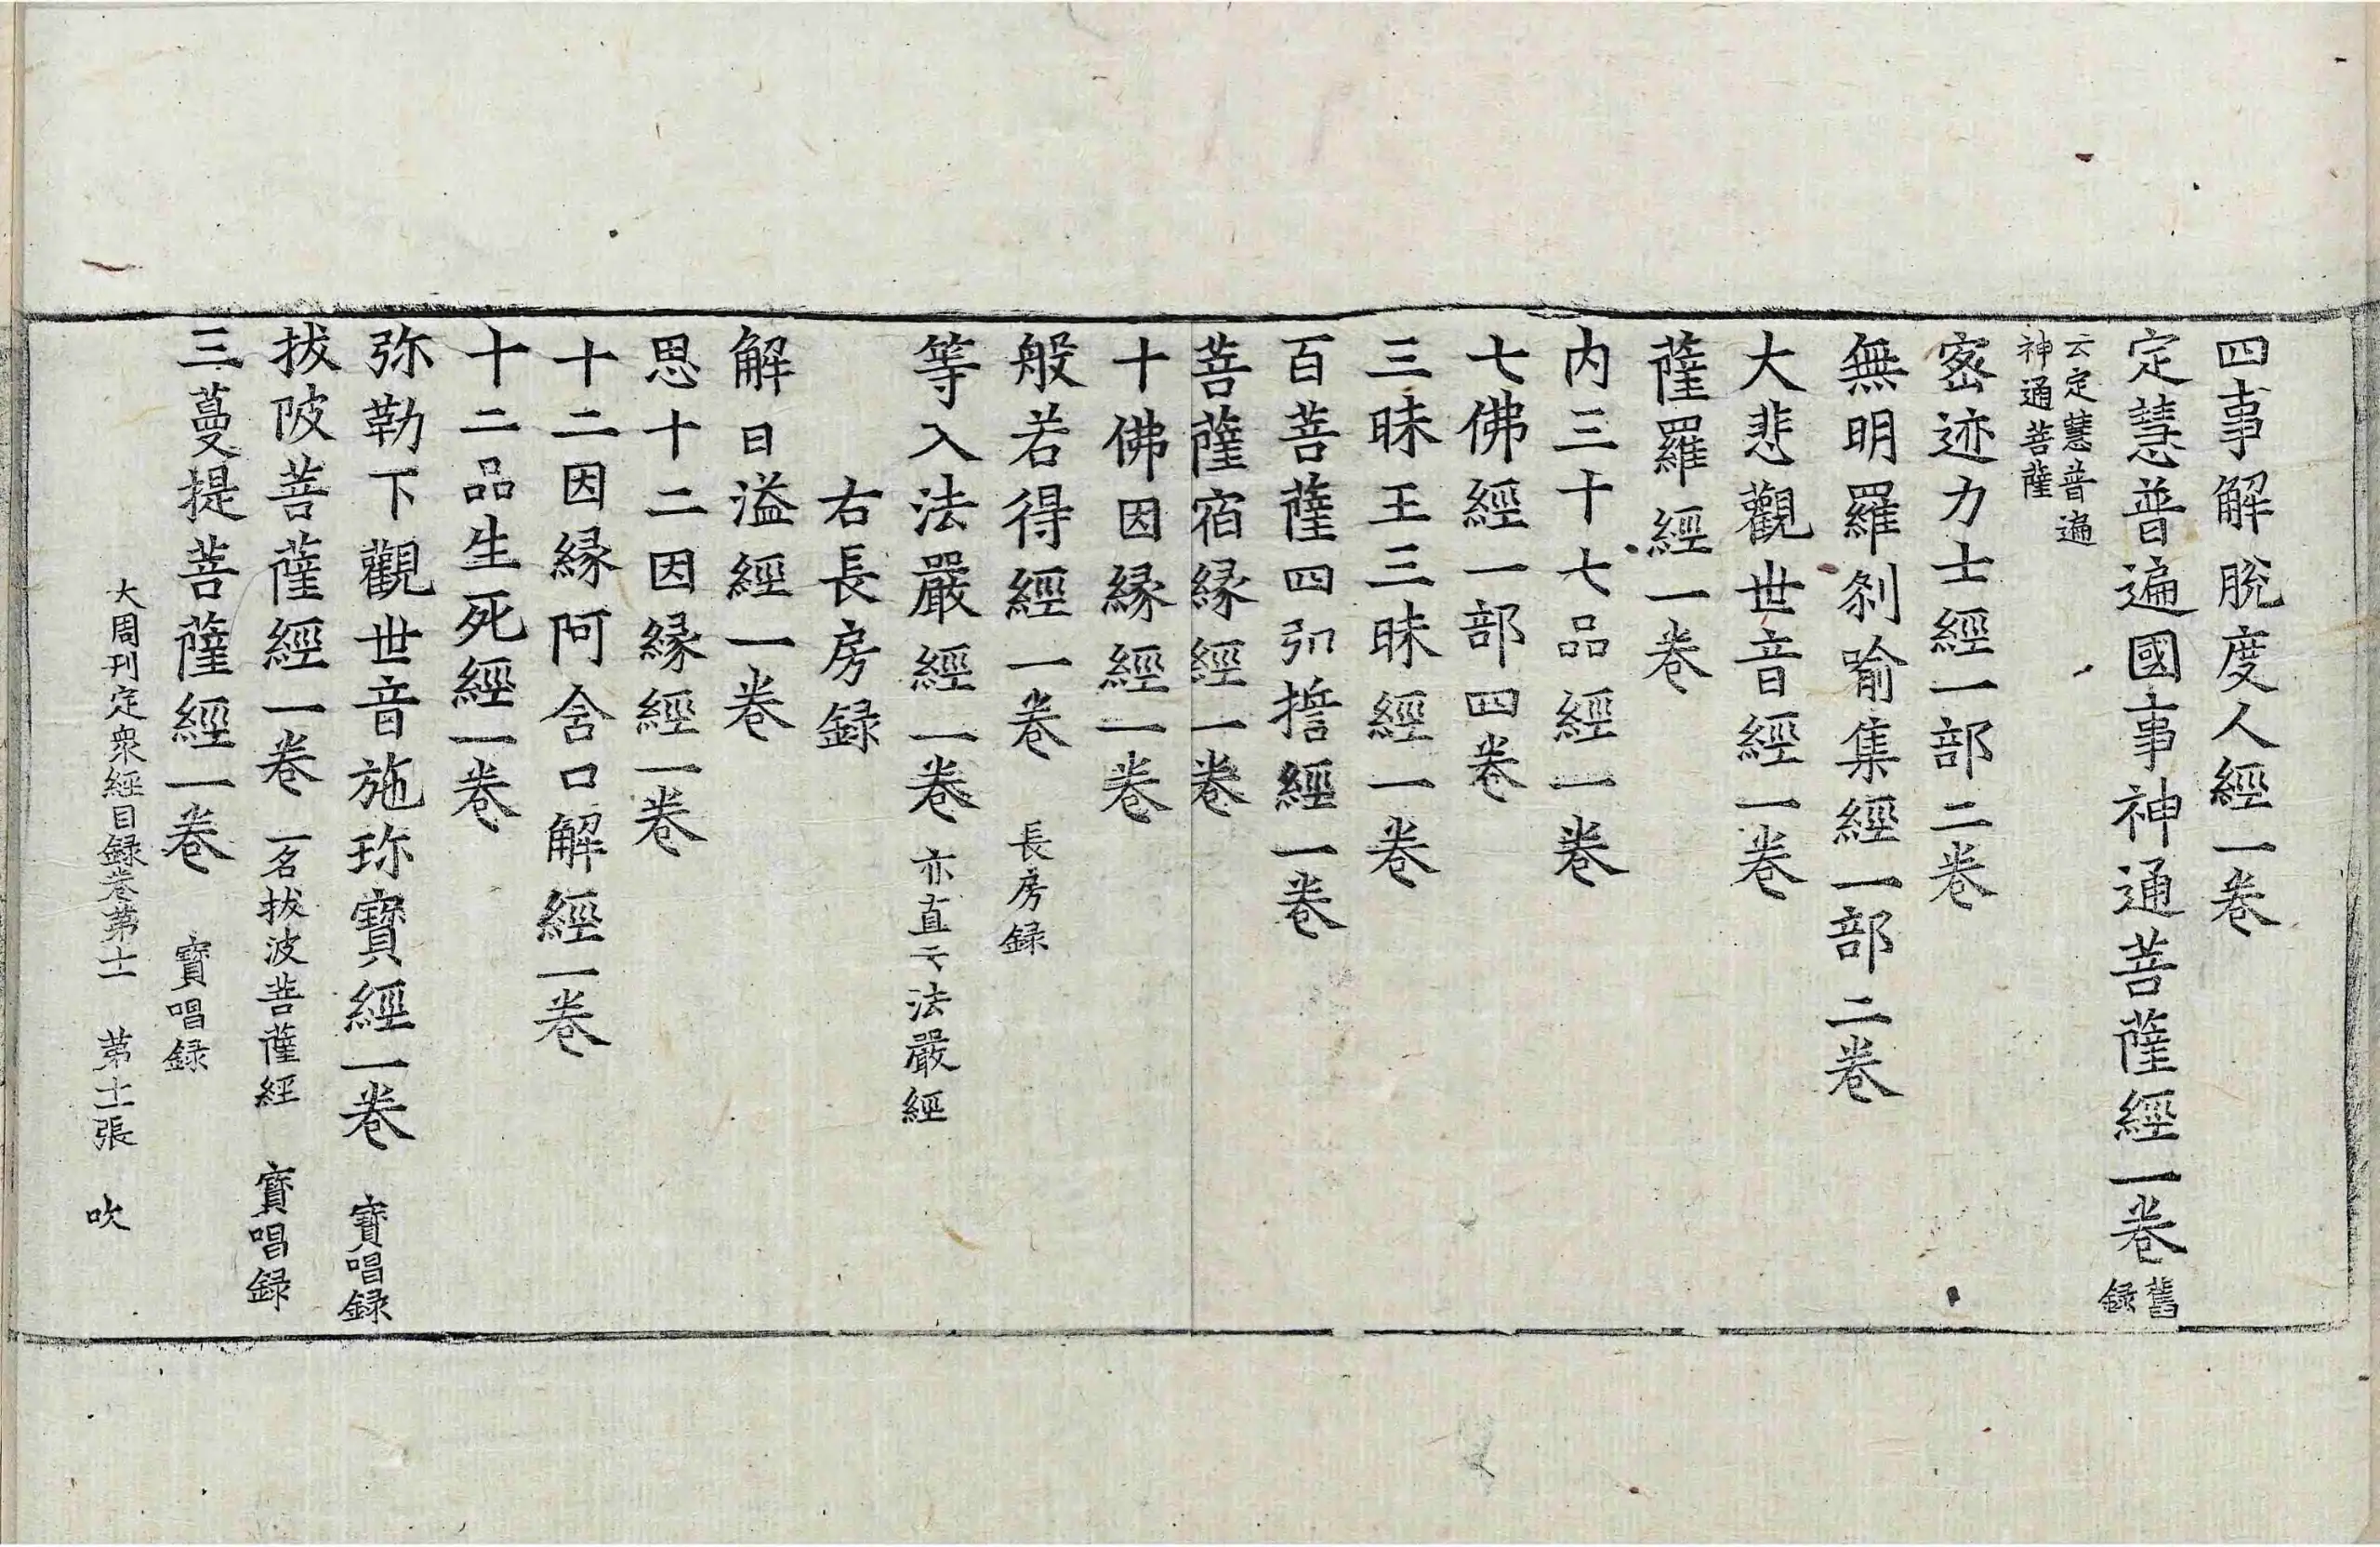 四事解脫度人經一卷
定慧普遍國事神通菩薩經一卷 舊錄
云定慧普遍
神通菩薩
密迹力士經一部二卷
無明羅剎喻集經一部二卷
大悲觀世音經一卷
薩羅經一卷
内三十七品經一卷
七佛經一部四卷
三昧王三昧經一卷
百菩薩四弘誓經一卷
菩薩宿緣經一卷
十佛因緣經一卷
般若得經一卷 長房録
等入法嚴經一卷 亦直云法嚴經
右長房録
解日溢經一卷
思十二因緣經一卷
十二因緣阿含口解經一卷
十二品生死經一卷
弥勒下觀世音施珎寶經一卷 寶唱録
拔陂菩薩經一卷 一名拔波菩薩經 寶唱録
三蔓提菩薩經一卷 寶唱録
大周刊定衆經目録卷第十一 第十一張 吹